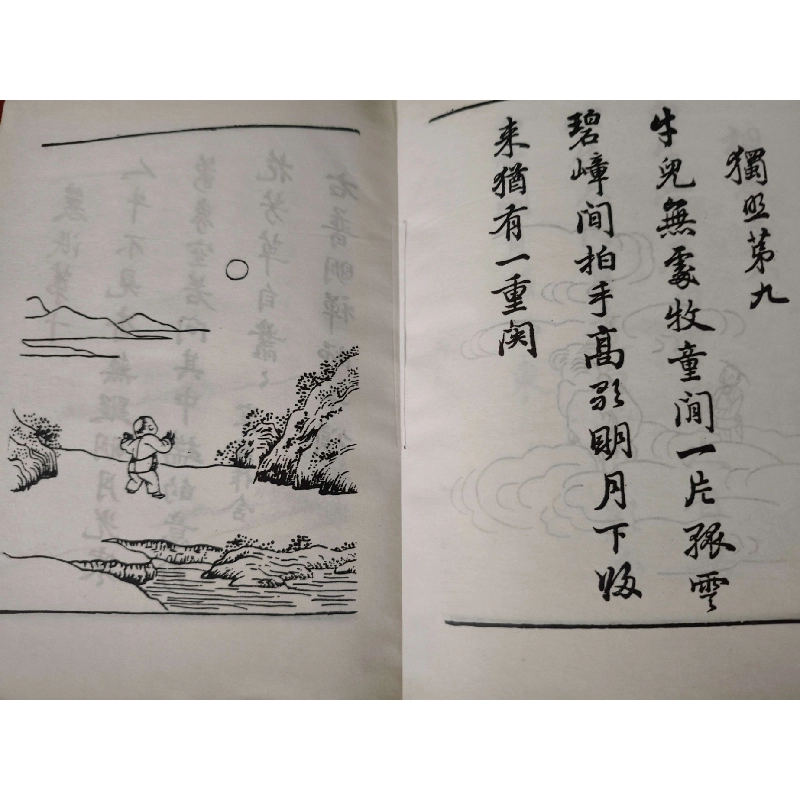 獨照第九
牛兒無處牧童閒一片孤雲
碧嶂间拍手高歌明月下歸
来猶有一重関